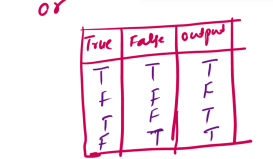 or
True False output
T T T
F F F
T F T
F T T